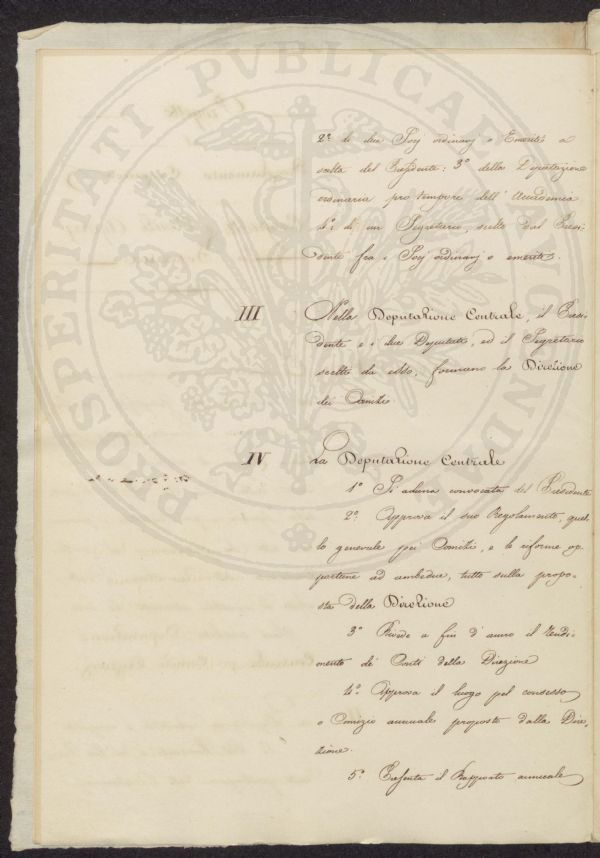 PROSPERITATI PVBLICAE AVGENDAE
2º. di due Socj ordinarj o Emeriti a
scelta del Presidente: 3º della Deputazione
ordinaria pro tempore dell'Accademia
4º: di un Segretario, scelto dal Presi-
dente fra i Socj ordinarj o emeriti.
III Nella Deputazione Centrale, il Presi-
dente e i due Deputati, ed il Segretario
scelti da esso, formano la Direzione
dei Comizi.
IV La Deputazione Centrale
1º Si aduna convocata dal Presidente
2º. Approva il suo Regolamento, quel-
lo generale pei Comizi, e le riforme op-
portune ad ambedue, tutto sulla propo-
sta della Direzione
3º Rivede a fin d'anno il Rendi-
mento de' Conti della Direzione
4º. Approva il luogo pel consesso
o Comizio annuale proposto dalla Dire-
zione.
5º. Presenta il Rapporto annuale